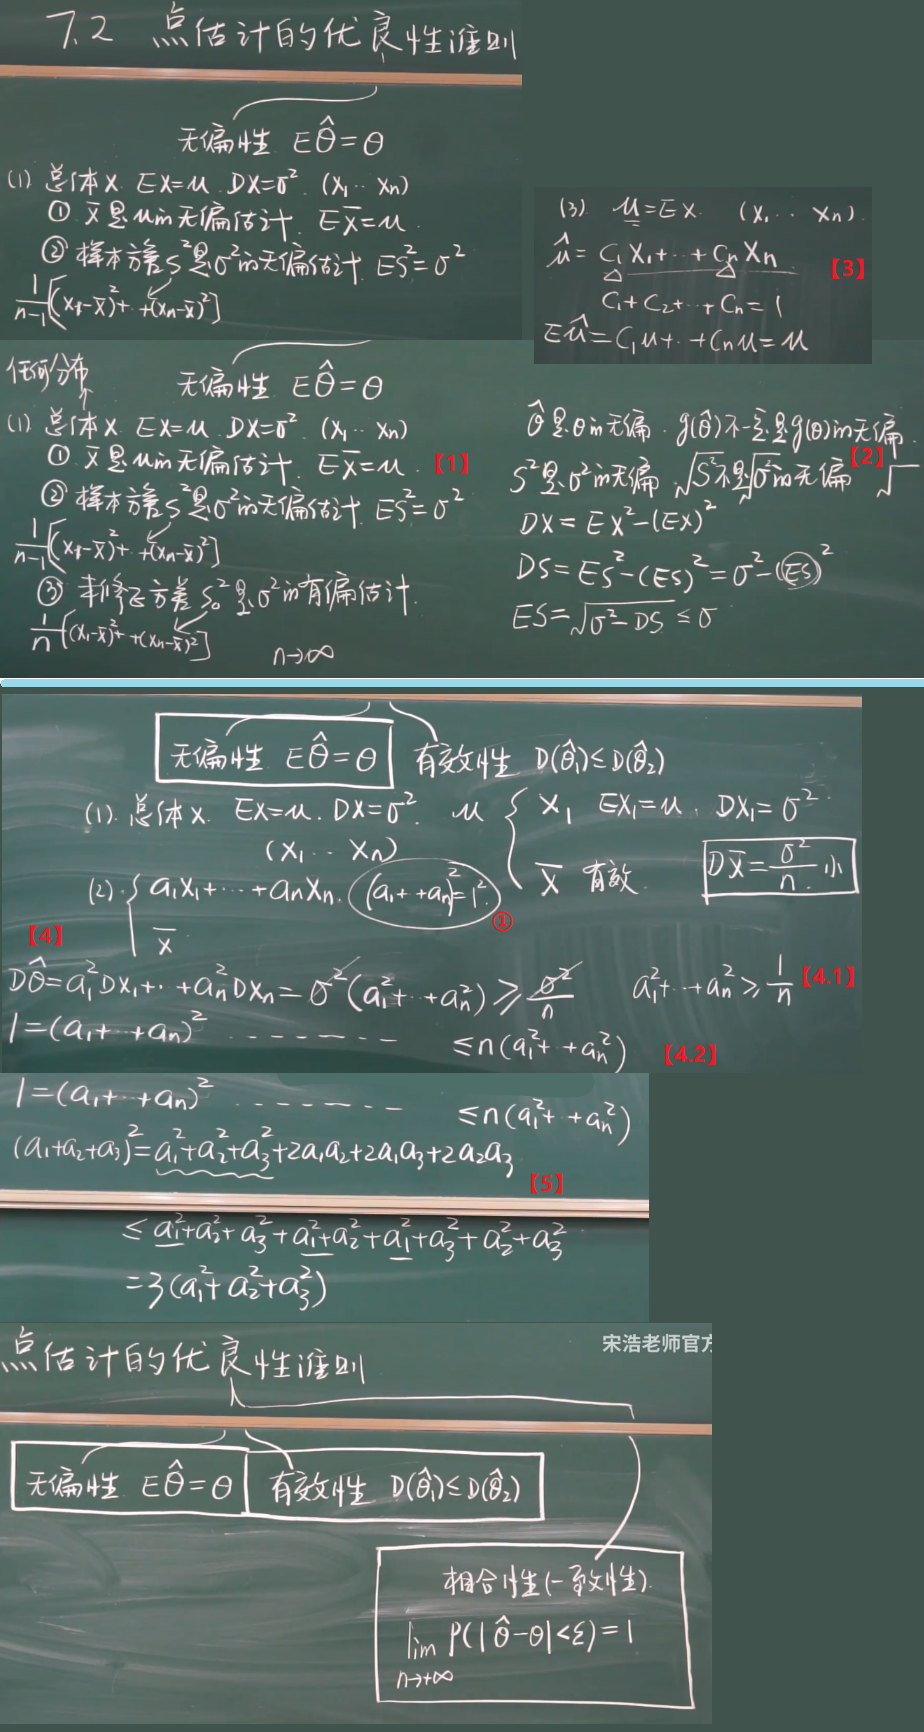 7.2 点估计的优良性准则
无偏性 Eθ̂=θ
(1) 总体X. EX=μ. DX=σ². (X₁…Xn)
① X̄是μ的无偏估计. EX̄=μ.
② 样本方差S²是σ²的无偏估计. ES²=σ²
1/(n-1)[(X₁-X̄)²+…+(Xn-X̄)²]
(3). μ=EX. (X₁…Xn).
μ̂=C₁X₁+…+CnXn 【3】
C₁+C₂+…+Cn=1
Eμ̂=C₁μ+…+Cnμ=μ
任何分布
无偏性 Eθ̂=θ
(1) 总体X. EX=μ. DX=σ². (X₁…Xn)
① X̄是μ的无偏估计. EX̄=μ. 【1】
② 样本方差S²是σ²的无偏估计. ES²=σ²
1/(n-1)[(X₁-X̄)²+…+(Xn-X̄)²]
③ 未修正方差S₀²是σ²的有偏估计.
1/n[(X₁-X̄)²+…+(Xn-X̄)²]
n→∞
θ̂是θ的无偏. g(θ̂)不一定是g(θ)的无偏. 【2】
S²是σ²的无偏. √S²不是√σ²的无偏 √
DX=EX²-(EX)²
DS=ES²-(ES)²=σ²-(ES)²
ES=√(σ²-DS)≤σ
无偏性 Eθ̂=θ 有效性 D(θ̂₁)≤D(θ̂₂)
(1). 总体X. EX=μ. DX=σ². μ { X₁ EX₁=μ. DX₁=σ²
(X₁…Xn)
X̄ 有效. DX̄=σ²/n. 小
(2). { a₁X₁+…+anXn. (a₁+…+an)²=1². ①
X̄
【4】
Dθ̂=a₁²DX₁+…+an²DXn=σ²(a₁²+…+an²)≥σ²/n a₁²+…+an²≥1/n 【4.1】
1=(a₁+…+an)² - - - - - - - - ≤n(a₁²+…+an²) 【4.2】
1=(a₁+…+an)² - - - - - - - - ≤n(a₁²+…+an²)
(a₁+a₂+a₃)²=a₁²+a₂²+a₃²+2a₁a₂+2a₁a₃+2a₂a₃
【5】
≤a₁²+a₂²+a₃²+a₁²+a₂²+a₁²+a₃²+a₂²+a₃²
=3(a₁²+a₂²+a₃²)
宋浩老师官方
点估计的优良性准则
无偏性 Eθ̂=θ 有效性 D(θ̂₁)≤D(θ̂₂)
相合性(一致性).
lim P(|θ̂-θ|<ε)=1
n→+∞